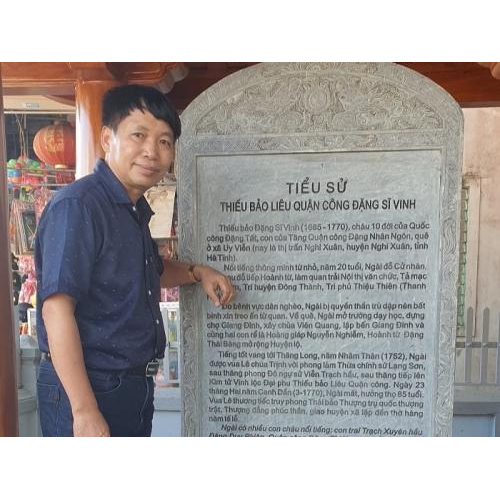 TIỂU SỬ
THIẾU BẢO LIÊU QUẬN CÔNG ĐẶNG SĨ VINH
Thiếu bảo Đặng Sĩ Vinh (1685-1770), cháu 10 đời của Quốc
công Đặng Tất, con của Tăng Quận công Đặng Nhân Ngôn, quê
ở xã Uy Viễn (nay là thị trấn Nghi Xuân, huyện Nghi Xuân, tỉnh
Hà Tĩnh).
Nổi tiếng thông minh từ nhỏ, năm 20 tuổi, Ngài đỗ Cử nhân,
đỗ tiếp Hoành từ, làm quan trải Nội thị văn chức, Tả mạc
Tri huyện Đông Thành, Tri phủ Thiệu Thiên (Thanh
bênh vực dân nghèo, Ngài bị quyền thần trù dập nên bất
bình xin treo ấn từ quan. Về quê, Ngài mở trường dạy học, dựng
chợ Giang Đình, xây chùa Viên Quang, lập bến Giang Đình và
cùng hai con rể là Hoàng giáp Nguyễn Nghiễm, Hoành từ Đặng
Thái Bàng mở rộng Huyện lộ.
Tiếng tốt vang tới Thăng Long, năm Nhâm Thân (1752), Ngài
được vua Lê chúa Trịnh vời phong làm Thừa chính sứ Lạng Sơn,
sau thăng phong Đô ngự sử Viễn Trạch hầu, sau thăng tiếp lên
Kim tử Vinh lộc Đại phu Thiếu bảo Liêu Quận công. Ngày 23
tháng Hai năm Canh Dần (3-1770), Ngài mất, hưởng thọ 85 tuổi.
Vua Lê thương tiếc truy phong Thái bảo Thượng trụ quốc thượng
trật, Thượng đẳng phúc thần, giao huyện xã lập đền thờ hàng
năm tế lễ.
Ngài có nhiều con cháu nổi tiếng: con trai Trạch Xuyên hầu